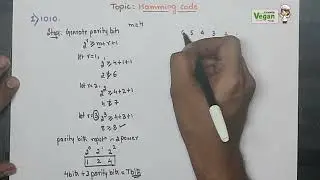 Topic: Hamming code
Vegan
1) 1010. m=4
Step: Generate parity bits
2^r ≥ m+r+1
let r=1,
2^1 ≥ 4+1+1
2 ≱ 6
let r=2,
2^2 ≥ 4+2+1
4 ≱ 7
let r=3, 2^3 ≥ 4+3+1
8 ≥ 8 ✓
parity bits repsnt in 2 power
2^0 2^1 2^2
1 2 4
4bit + 3 parity bits = 7bits
5 4 3 2